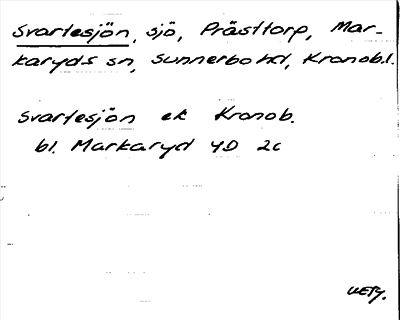 Svartesjön, sjö, Prästtorp, Mar-
karyds sn, Sunnerbo hd, Kronob.l.
Svartesjön ek Kronob.
bl. Markaryd 4D 2c